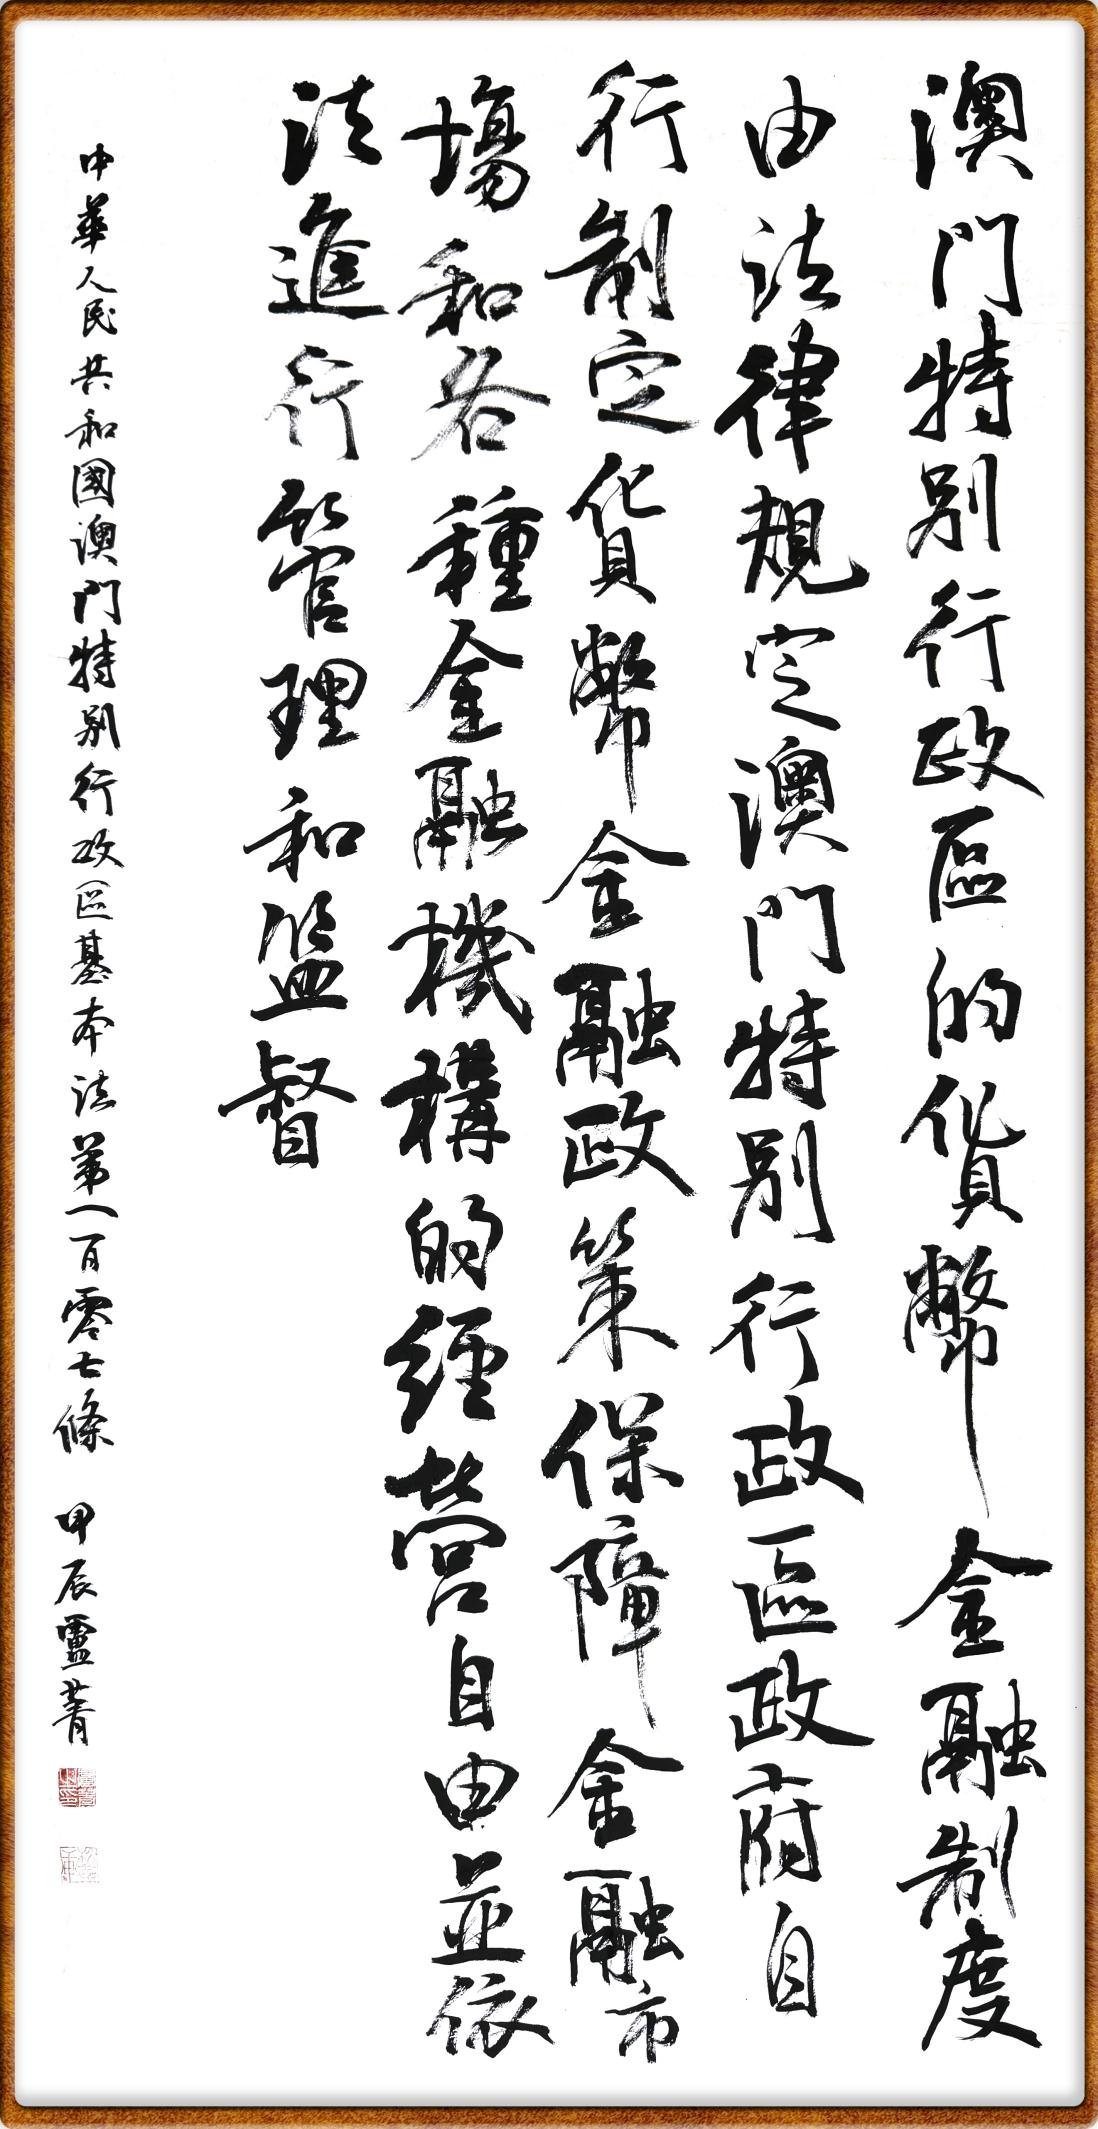 澳門特別行政區的貨幣金融制度
由法律規定澳門特別行政區政府自
行制定貨幣金融政策保障金融市
場和各種金融機構的經營自由並依
法進行管理和監督
中華人民共和國澳門特別行政區基本法第一百零七條 甲辰盧菁